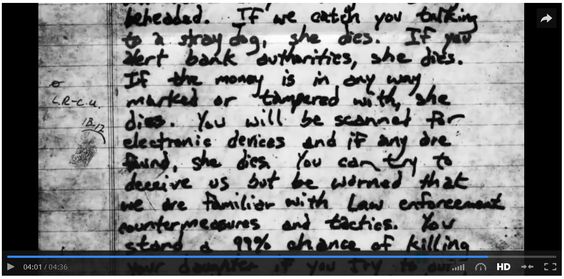 beheaded. If we catch you talking
to a stray dog, she dies. If you
alert bank authorities, she dies.
If the money is in any way
marked or tampered with, she
dies. You will be scanned for
electronic devices and if any are
found, she dies. You can try to
deceive us but be warned that
we are familiar with Law enforcement
countermeasures and tactics. You
stand a 99% chance of killing
your daughter if you try to
L.R-C.U.
18-12
04:01 / 04:36
HD